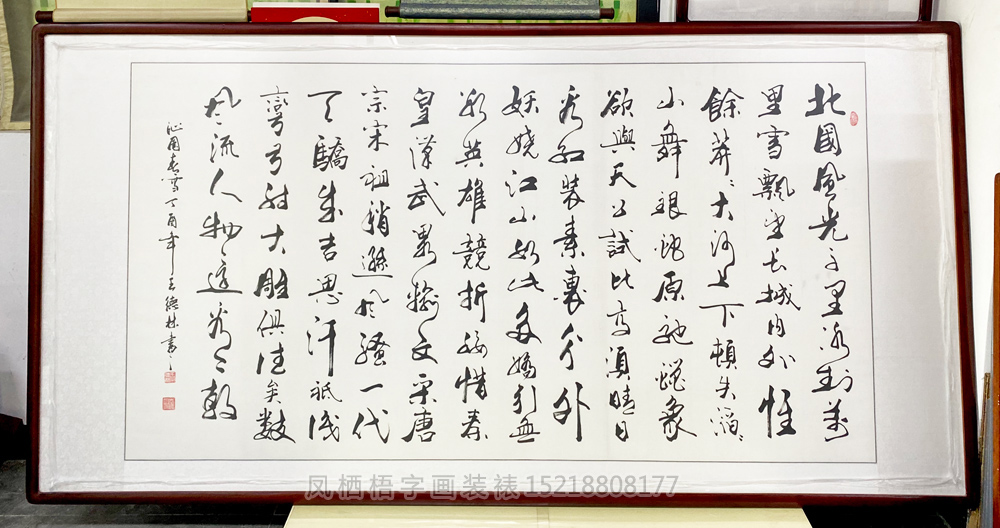 北國風光千里冰封萬
里雪飄望长城内外惟
餘莽〻大河上下頓失滔〻
山舞银蛇原驰蠟象
欲與天公試比高須晴日
看红装素裹分外
妖娆江山如此多娇引無
数英雄競折腰惜秦
皇漢武略輸文采唐
宗宋祖稍遜風騷一代
天驕成吉思汗祗识
彎弓射大雕俱往矣数
風流人物還看今朝
沁園春雪丁酉年王德林書
凤栖梧字画装裱15218808177